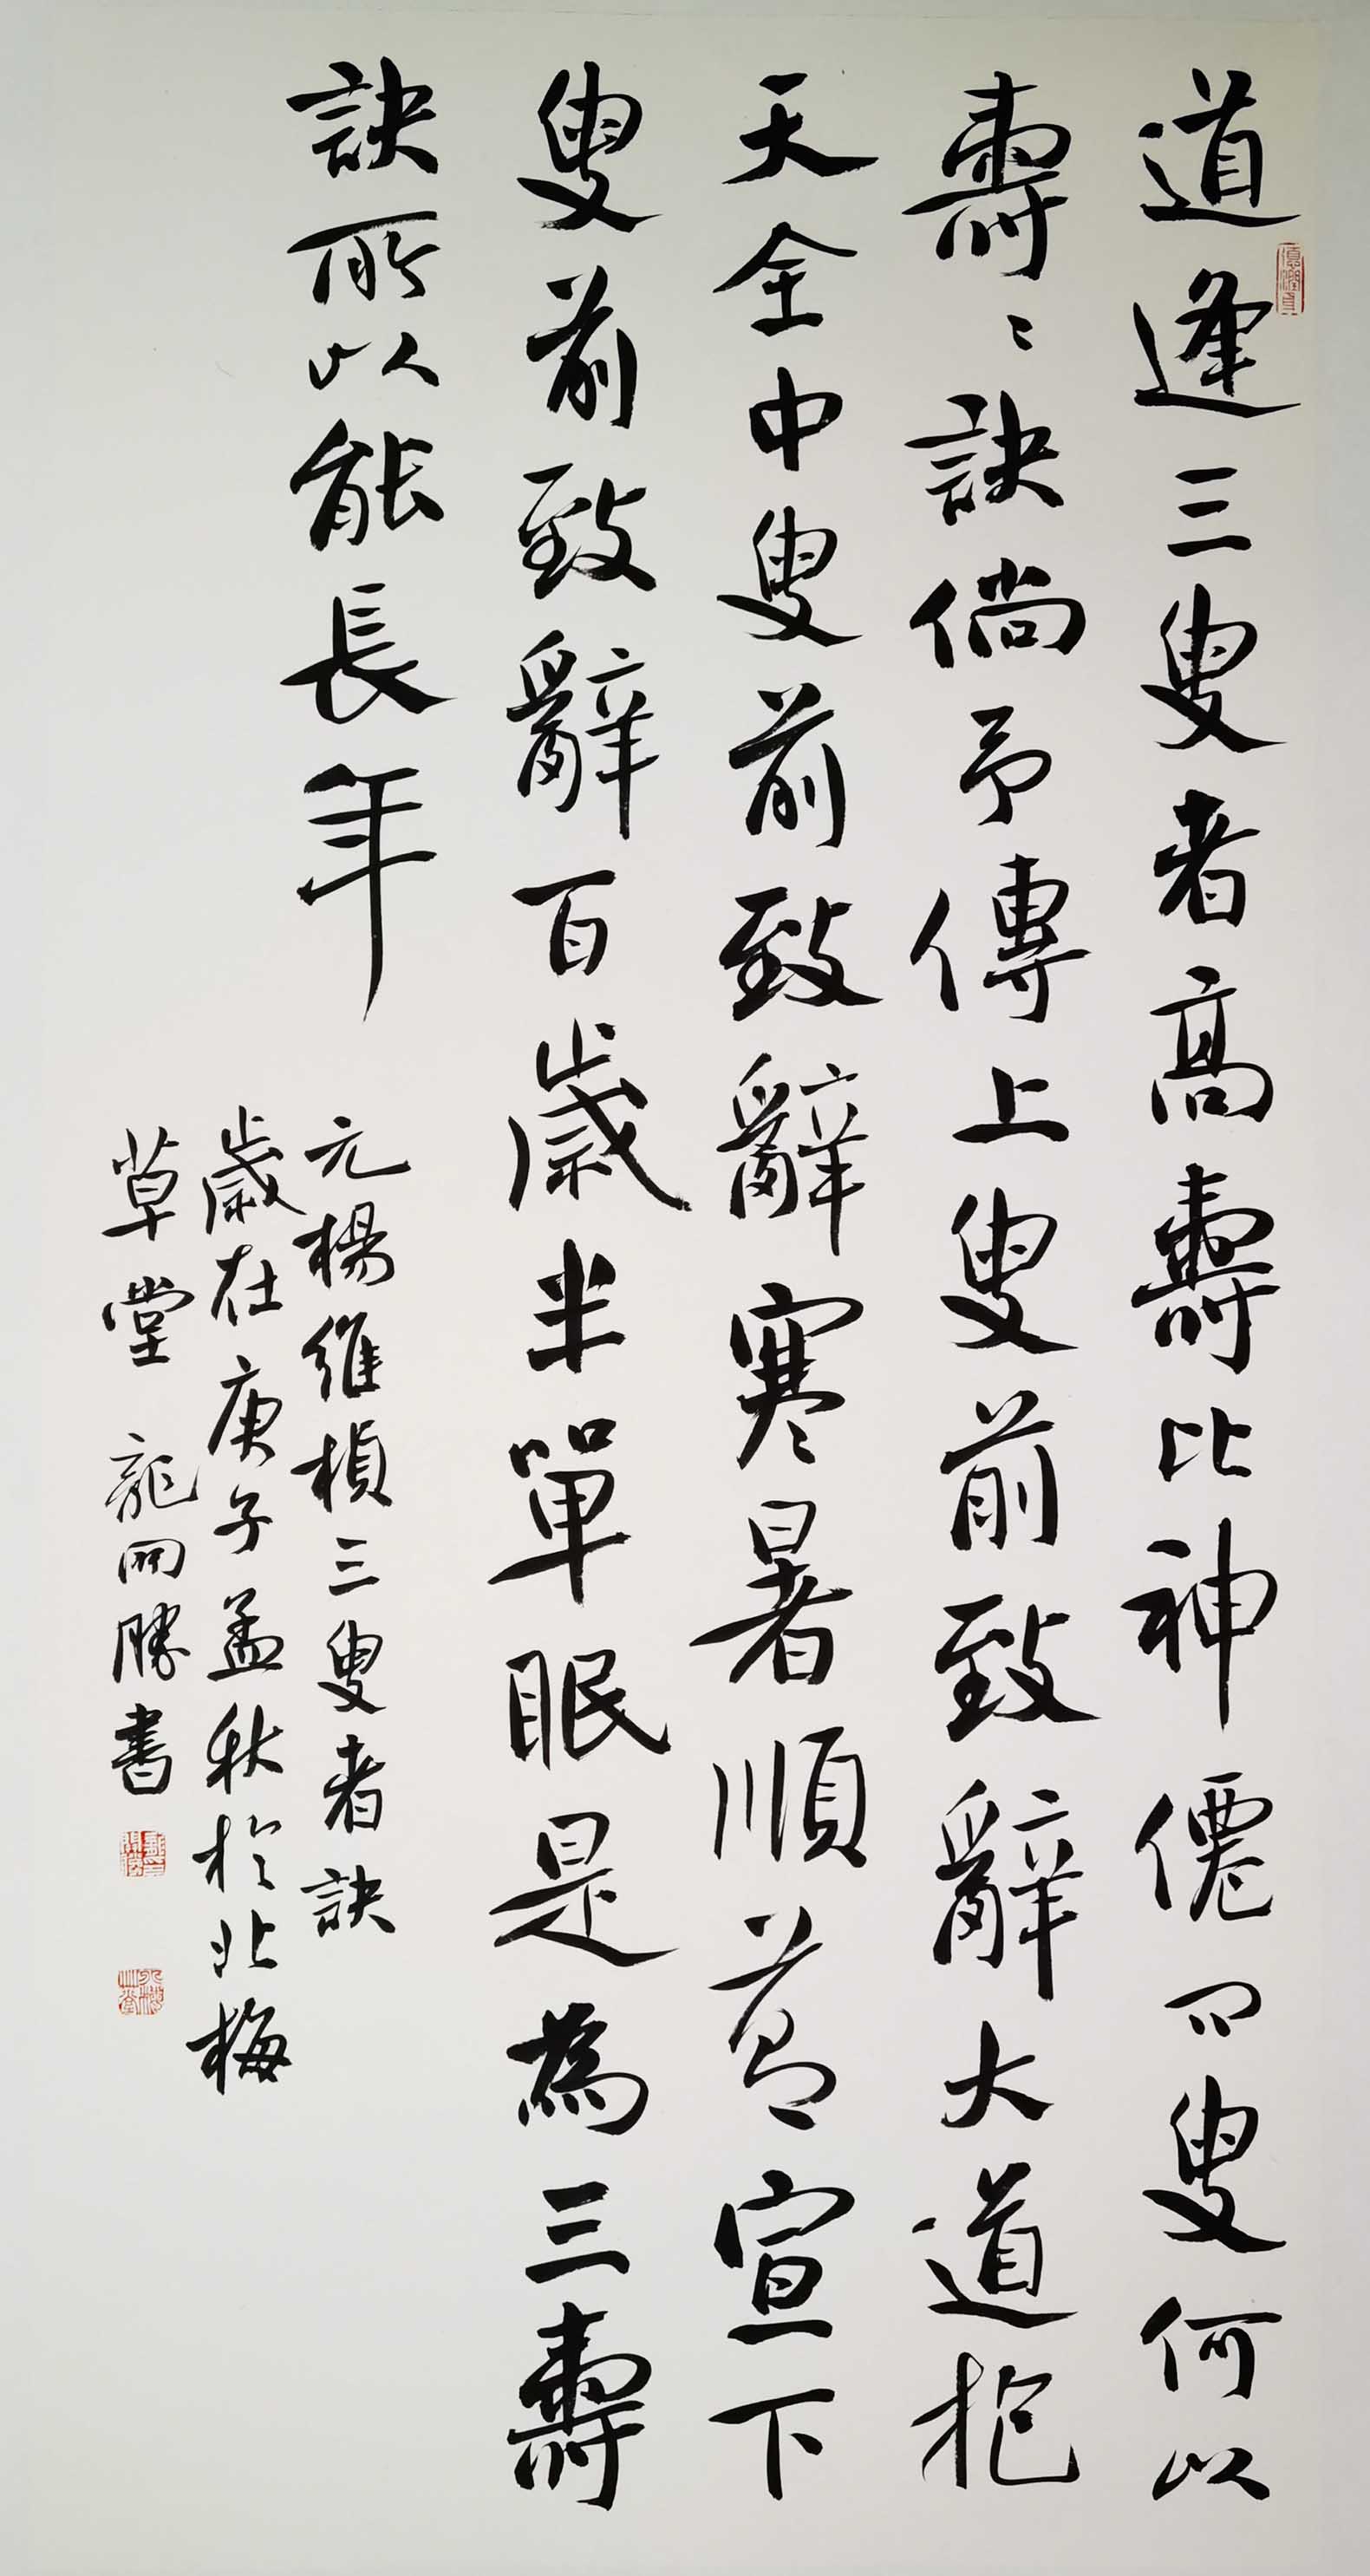 道逢三叟者高壽比神僊問叟何以
壽〻訣倘予傳上叟前致辭大道抱
天全中叟前致辭寒暑順節宣下
叟前致辭百歲半單眠是為三壽
訣所以能長年
元楊維楨三叟者訣
歲在庚子孟秋於北梅
草堂 龍開勝書